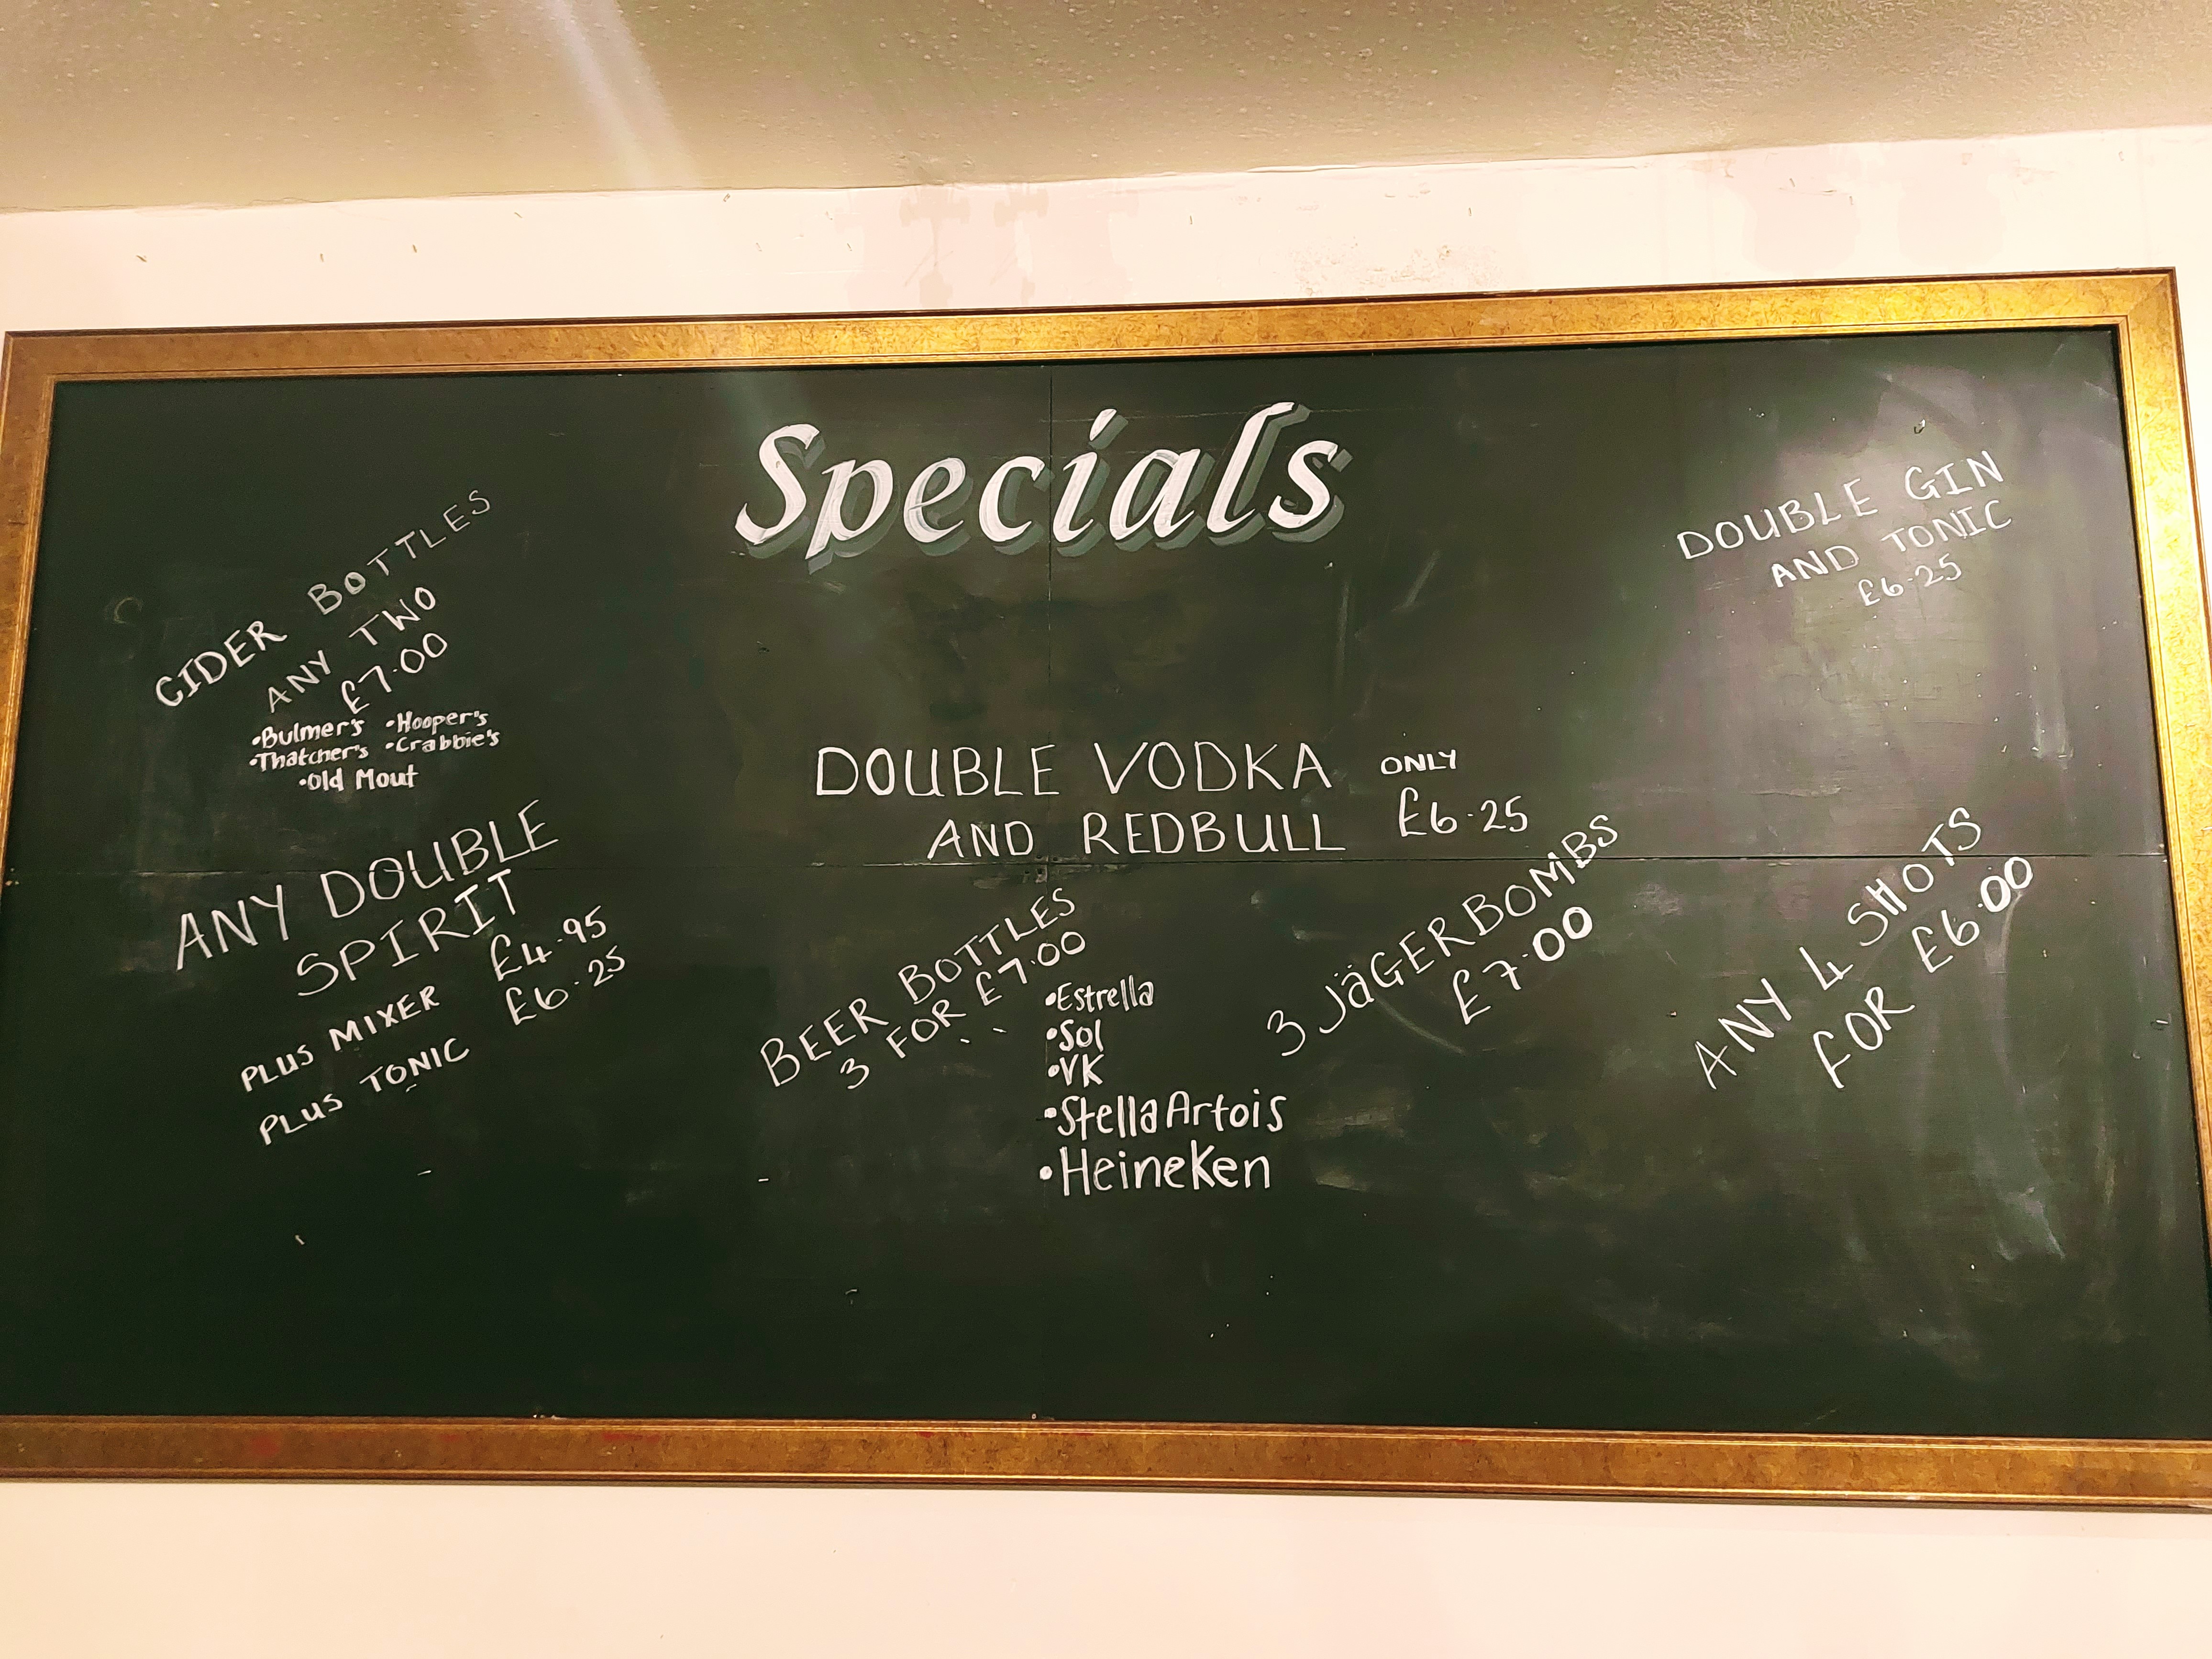 Specials
CIDER BOTTLES
ANY TWO
£7.00
•Bulmer's •Hooper's
•Thatcher's •Crabbie's
•Old Mout
DOUBLE GIN
AND TONIC
£6.25
DOUBLE VODKA ONLY
AND REDBULL £6.25
ANY DOUBLE
SPIRIT
PLUS MIXER £4.95
PLUS TONIC £6.25
BEER BOTTLES
3 FOR £7.00
•Estrella
•Sol
•VK
•Stella Artois
•Heineken
3 JäGERBOMBS
£7.00
ANY 4 SHOTS
FOR £6.00